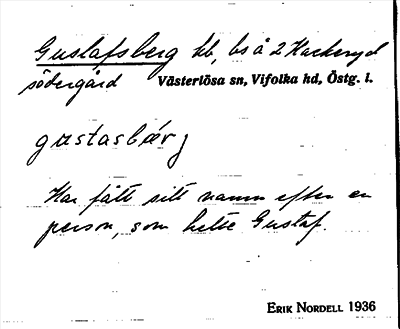 Gustafsberg lb, bs å 2 Hackeryd
södergård Västerlösa sn, Vifolka hd, Östg. l.
gustasbærj
Har fått sitt namn efter en
person, som hette Gustaf.
ERIK NORDELL 1936